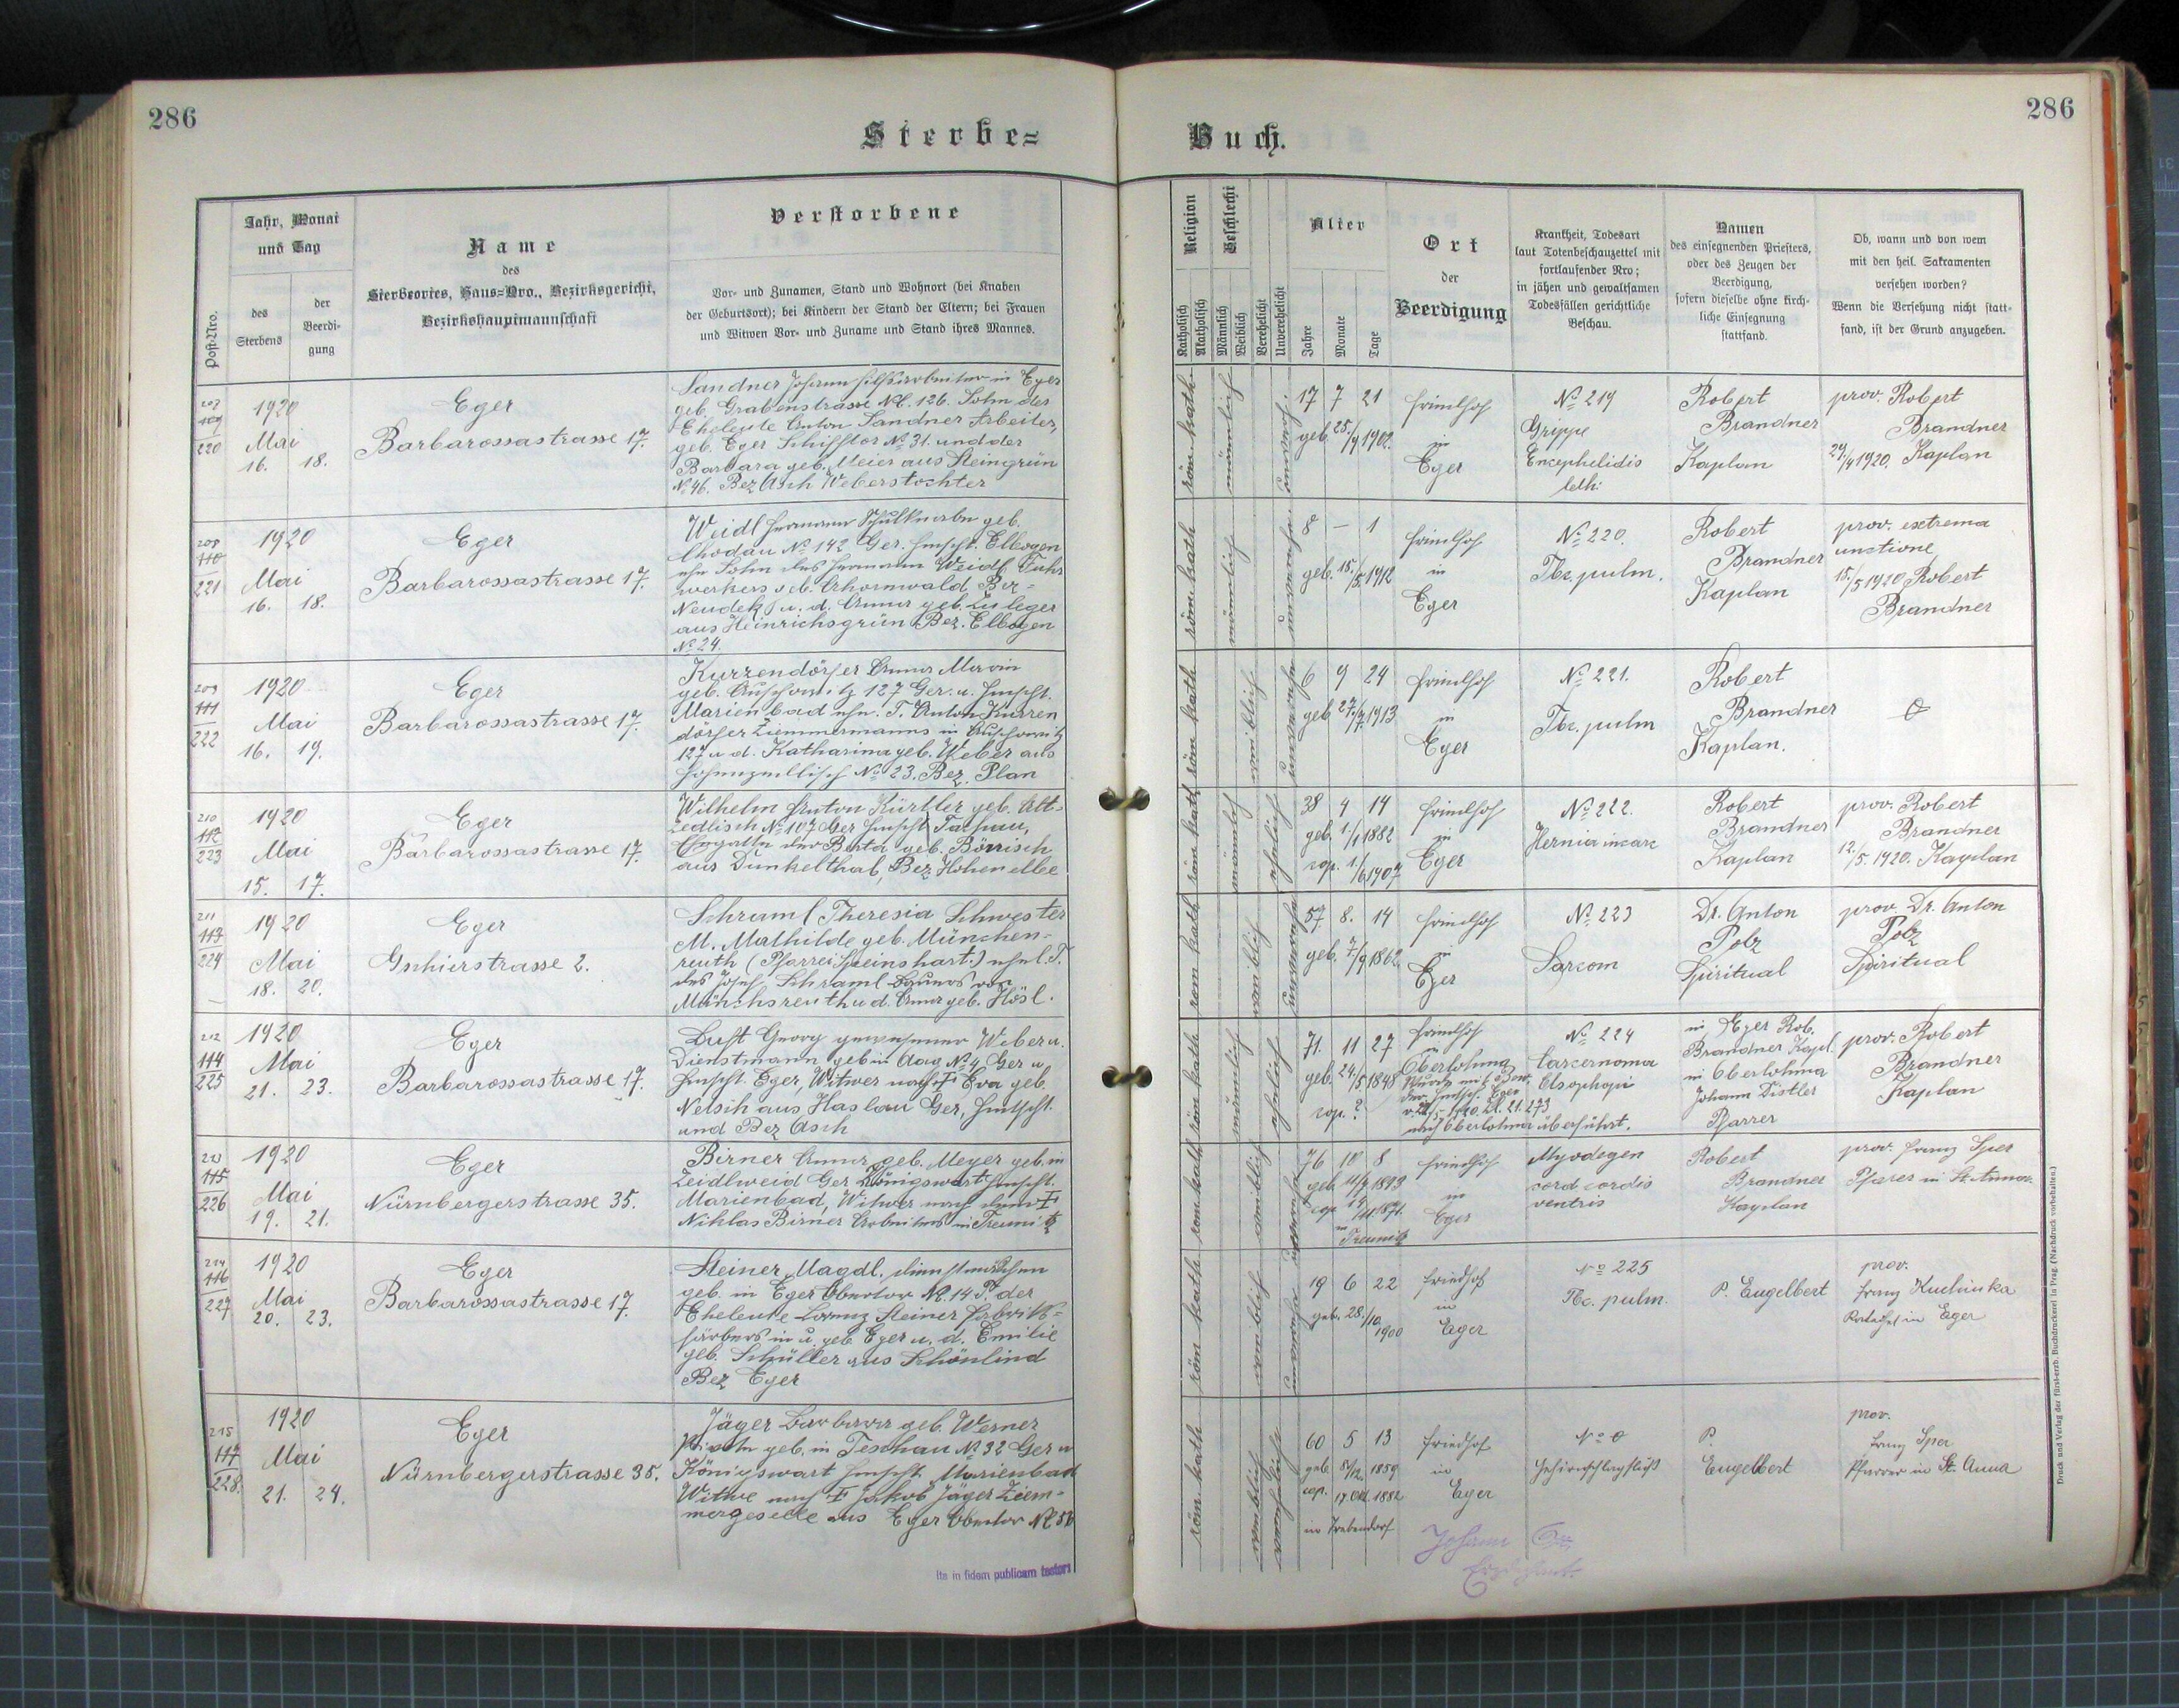 286
286
Sterbe=
Buch.
Post-Nro.
Jahr, Monat
und Tag
des
Sterbens
der
Beerdi-
gung
Name
des
Sterbeortes, Haus=Nro., Bezirksgericht,
Bezirkshauptmannschaft
Verstorbene
Vor- und Zunamen, Stand und Wohnort (bei Knaben
der Geburtsort); bei Kindern der Stand der Eltern; bei Frauen
und Witwen Vor- und Zuname und Stand ihres Mannes.
Religion
Katholisch
Akatholisch
Geschlecht
Männlich
Weiblich
Verehelicht
Unverehelicht
Alter
Jahre
Monate
Tage
Ort
der
Beerdigung
Krankheit, Todesart
laut Totenbeschauzettel mit
fortlaufender Nro;
in jähen und gewaltsamen
Todesfällen gerichtliche
Beschau.
Namen
des einsegnenden Priesters,
oder des Zeugen der
Beerdigung,
sofern dieselbe ohne kirch-
liche Einsegnung
stattfand.
Ob, wann und von wem
mit den heil. Sakramenten
versehen worden?
Wenn die Versehung nicht statt-
fand, ist der Grund anzugeben.
207
109
220
1920
Mai
16. 18.
Eger
Barbarossastrasse 17.
Sandner Johann Hilfsarbeiter in Eger
geb. Grabenstrasse N. 126. Sohn der
Eheleute Anton Sandner Arbeiter,
geb. Eger Schifftor No 31. und der
Barbara geb. Meier aus Steingrün
No 46. Bez Asch Weberstochter
röm. kath.
männlich
17 7 21
geb. 25./9 1902.
Friedhof
in
Eger
No 219
Grippe
Encephelidis
leth:
Robert
Brandner
Kaplan
prov. Robert
Brandner
29./4 1920. Kaplan
208
110
221
1920
Mai
16. 18.
Eger
Barbarossastrasse 17.
Weidl Hermann Schulknabe geb.
Chodau No 142 Ger. Hmscht. Elbogen
ehe Sohn des Hermann Weidl Fuhr
werkers geb. Ahornwald Bez-
Neudek u. d. Anna geb. Zuleger
aus Heinrichsgrün Bez. Elbogen
No 24.
röm. kath
männlich
8 — 1
geb. 15./5. 1912
Friedhof
in
Eger
No 220.
Tbc. pulm.
Robert
Brandner
Kaplan
prov. extrema
unctione
15./5 1920 Robert
Brandner
209
111
222
1920
Mai
16. 19.
Eger
Barbarossastrasse 17.
Kurzendörfer Anna Marie
geb. Auschowitz 127 Ger. u. Hmscht.
Marienbad ehe. T. Anton Kurzen
dörfer Zimmermanns in Auschowitz
127 u d. Katharina geb. Weber aus
No 23. Bez. Plan
röm kath
weiblich
6 9 24
geb 27./7. 1913
Friedhof
in
Eger
No 221.
Tbc. pulm
Robert
Brandner
Kaplan.
210
112
223
1920
Mai
15. 17.
Eger
Barbarossastrasse 17.
Wilhelm Anton Kürtler geb. Alt-
Zedlisch No 107 Ger Hmscht Tachau,
Ehegatte der Berta geb. Börrisch
aus Dunkelthal, Bez Hohenelbe
röm kath
männlich
ehelich
38 4 14
geb. 1./1 1882
cop. 1./6 1907
Friedhof
in
Eger
No 222.
Hernia incarc
Robert
Brandner
Kaplan
prov. Robert
Brandner
12./5. 1920. Kaplan
211
113
224
1920
Mai
18. 20.
Eger
Gschierstrasse 2.
Schraml Theresia Schwester
M. Mathilde geb. München-
reuth (Pfarrei Speinshart) ehel. T.
des Josef Schraml Bauers von
Münchsreuth u d. Anna geb. Hösl.
röm kath
weiblich
57 8. 14
geb. 7/9 1862
Friedhof
in
Eger
No 223
Sarcom
Dr. Anton
Polz
Spiritual
prov. Dr. Anton
Polz
Spiritual
212
114
225
1920
Mai
21. 23.
Eger
Barbarossastrasse 17.
Lust Georg gewesener Weber u.
Dienstmann geb in Aag No 4 Ger u
Hmscht. Eger, Witwer nach † Eva geb.
Netsch aus Haslau Ger, Hmtscht.
und Bez Asch
röm kath
männlich
ehelich
71. 11 27
geb. 24./5 1848
cop. ?
Friedhof
Oberlohma
nach Oberlohma überführt.
No 224
Carcernoma
Robert in Eger Rob.
Brandner Kapl.
in Oberlohma
Johann Distler
Pfarrer
prov. Robert
Brandner
Kaplan
213
115
226
1920
Mai
19. 21.
Eger
Nürnbergerstrasse 35.
Birner Anna geb. Meyer geb. in
Zeidlweid Ger Königswart Hmscht.
Marienbad, Witwe nach dem †
Niklas Birner Arbeiter in Treunitz
röm kath
weiblich
76 10 8
in
Treunitz
Friedhof
in
Eger
Myodegen
cord cordis
ventris
Robert
Brandner
Kaplan
prov. Franz Sper
Pfarrer in St. Anna.
214
116
227
1920
Mai
20. 23.
Eger
Barbarossastrasse 17.
Steiner Magdl. Dienstmädchen
geb. in Eger Obertor N. 14 T. der
Eheleute Lorenz Steiner Fabriks-
färbers in u. geb Eger u. d. Emilie
geb. Schüller aus Schönlind
Bez Eger
röm kath
weiblich
19 6 22
geb. 28./10. 1900
Friedhof
in
Eger
No 225
Tbc. pulm.
P. Engelbert
prov.
Franz Kuchinka
in Eger
215
117
228.
1920
Mai
21. 24.
Eger
Nürnbergerstrasse 35.
Jäger Barbara geb. Werner
Private geb. in Teschau No 32 Ger u
Königswart Hmscht Marienbad
Witwe nach † Jakob Jäger Zim-
mergeselle aus Eger Obertor
röm. kath
weiblich
60 5 13
geb 8/12. 1859
cop. 17. Okt. 1882
in Trebendorf
Friedhof
in
Eger
No 0
Gehirnschlagfluß
P.
Engelbert
prov.
Franz Sper
Pfarrer in St. Anna
Ita in fidem publicam testor:
Johann
Druck und Verlag der fürst-erzb. Buchdruckerei in Prag. (Nachdruck vorbehalten.)